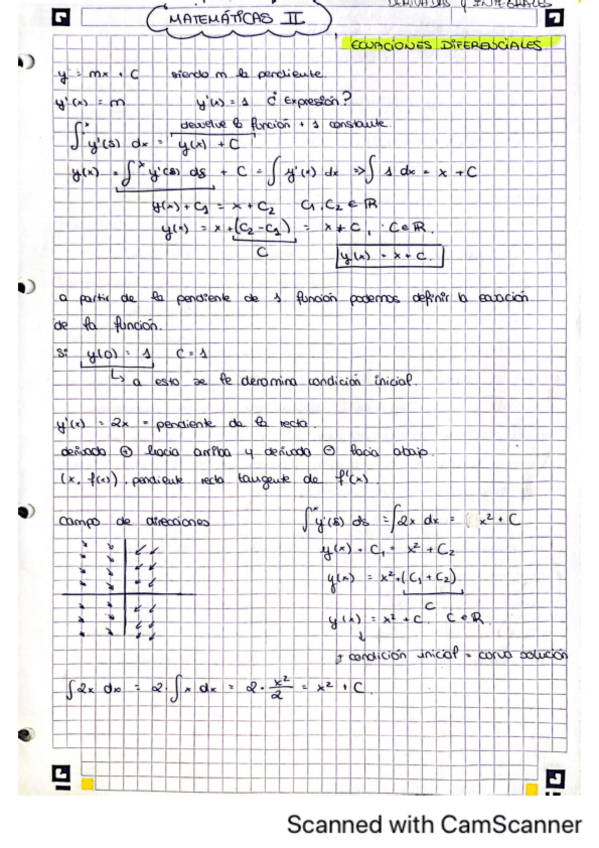 DERIVADAS y INTEGRALES
MATEMÁTICAS II
ECUACIONES DIFERENCIALES
y = mx + C siendo m la pendiente.
y'(x) = m y'(x) = 1 ¿Expresión?
devuelve la función + 1 constante.
∫ˣ y'(s) dx = y(x) + C
y(x) = ∫ˣ y'(s) ds + C = ∫ y'(x) dx => ∫ 1 dx = x + C
y(x) + C₁ = x + C₂ C₁, C₂ ∈ ℝ
y(x) = x + (C₂ - C₁) = x + C, C ∈ ℝ.
C
y(x) = x + C.
a partir de la pendiente de 1 función podemos definir la ecuación
de la función.
Si y(0) = 1 C = 1
↳ a esto se le denomina condición inicial.
y'(x) = 2x = pendiente de la recta.
derivada ⊕ hacia arriba y derivada ⊖ hacia abajo.
(x, f(x)), pendiente recta tangente de f'(x).
campo de direcciones
∫ˣ y'(s) ds = ∫ 2x dx = x² + C
y(x) + C₁ = x² + C₂
y(x) = x² + (C₁ + C₂)
C
y(x) = x² + C. C ∈ ℝ
↓
+ condición inicial = curva solución
∫ 2x dx = 2 · ∫ x dx = 2 · x²/2 = x² + C.
Scanned with CamScanner